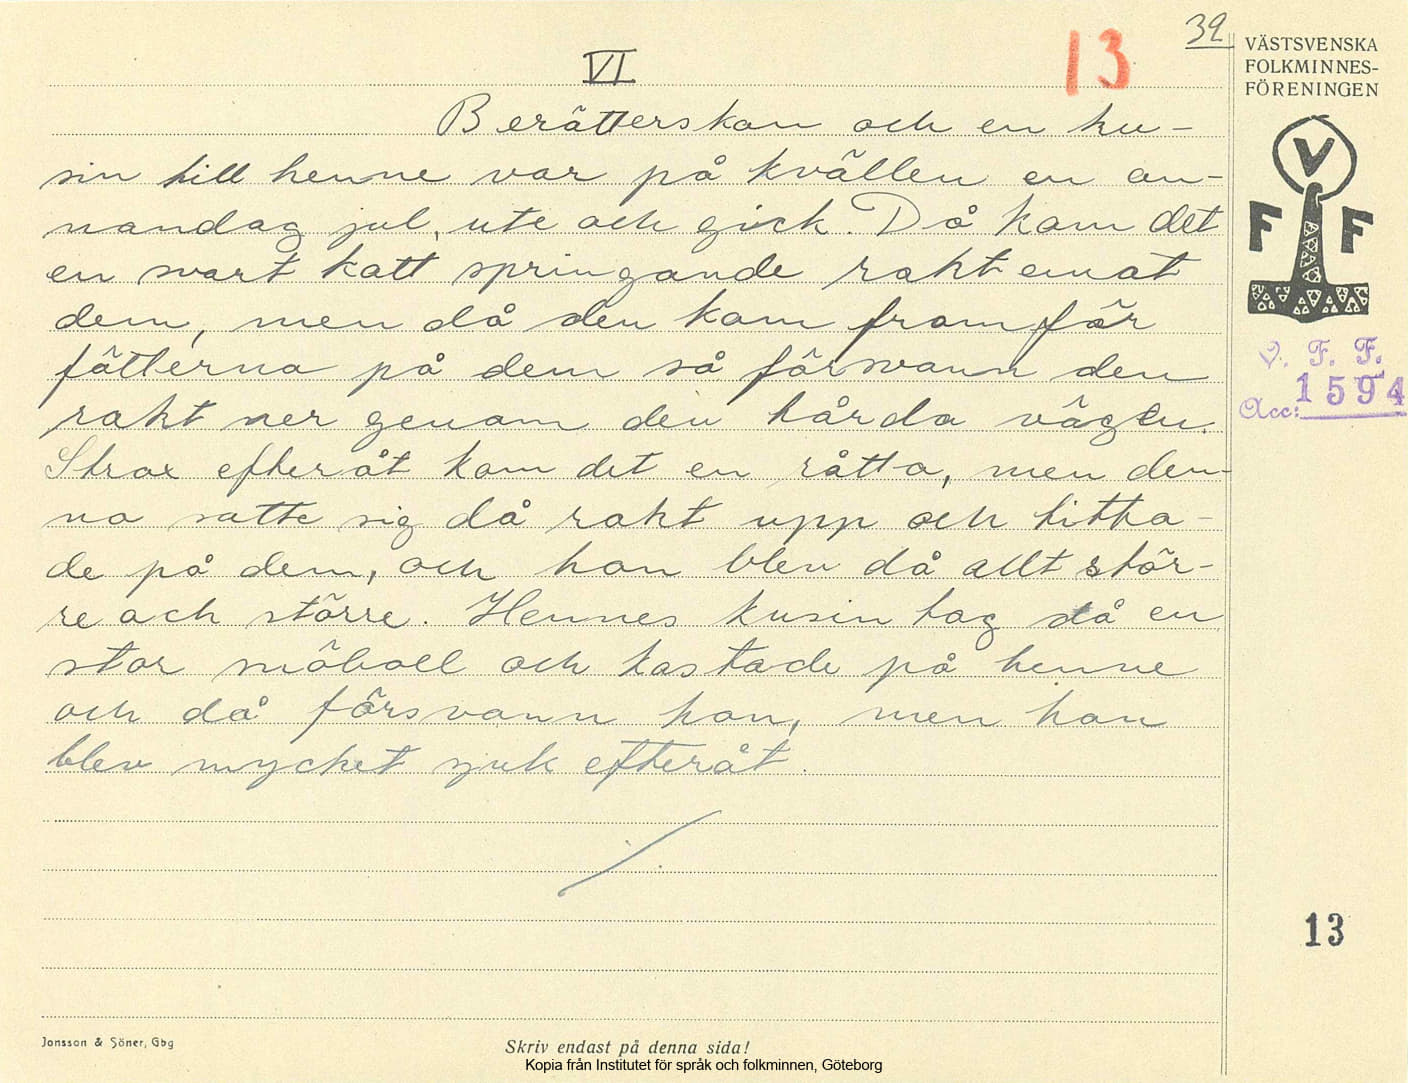 39
VI
13
Berätterskan och en ku-
sin till henne var på kvällen en an-
nandag jul, ute och gick. Då kom det
en svart katt springande rakt emot
dem, men då den kom framför
fötterna på dem så försvann den
rakt ner genom den hårda vägen.
Strax efteråt kom det en råtta, men den-
na satte sig då rakt upp och titta-
de på dem, och hon blev då allt stör-
re och större. Hennes kusin tog då en
stor snöboll och kastade på henne
och då försvann hon, men hon
blev mycket sjuk efteråt.
VÄSTSVENSKA
FOLKMINNES-
FÖRENINGEN
V
F F
V. F. F.
Acc: 1594
13
Jonsson & Söner, Gbg
Skriv endast på denna sida!
Kopia från Institutet för språk och folkminnen, Göteborg